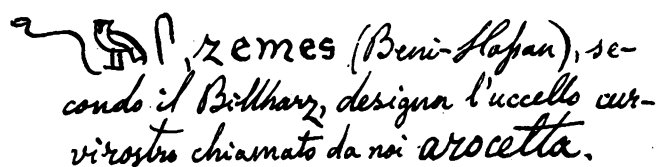 𓆓𓅓𓋴, zemes (Beni-Hassan), se-
condo il Billharz, designa l'uccello cur-
virostro chiamato da noi arocetta.